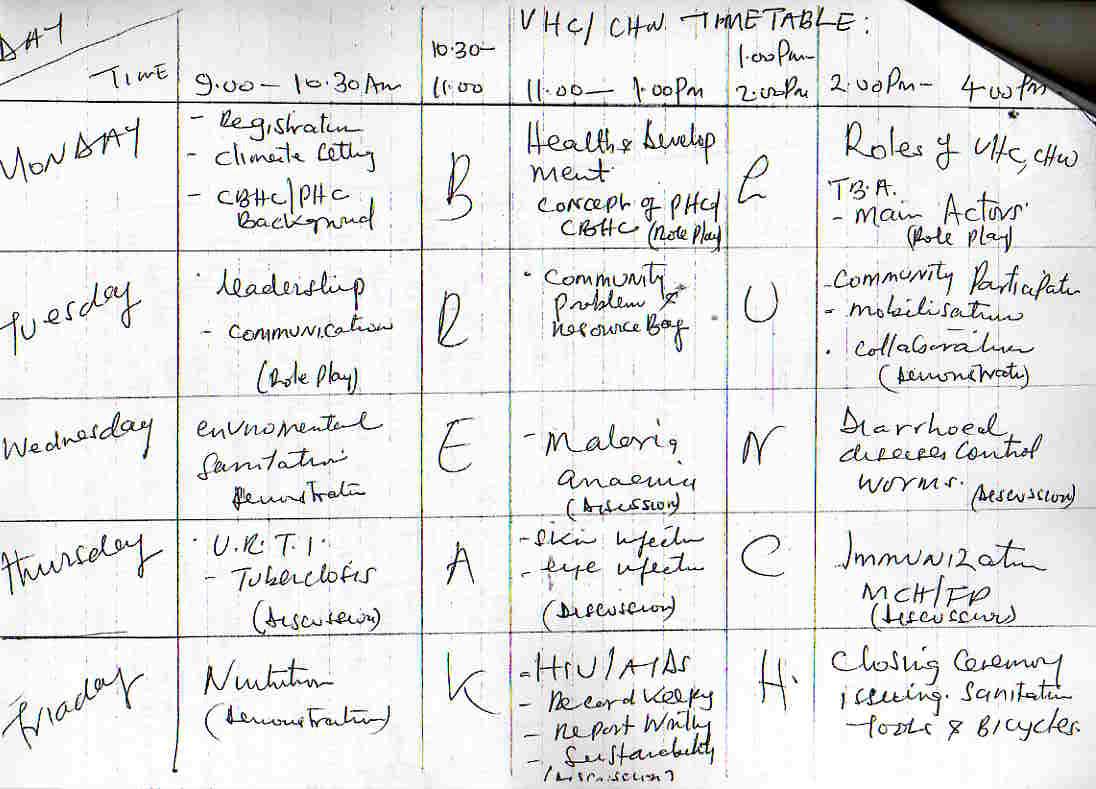 VHC/ CHW TIMETABLE:
DAY
TIME
9.00 - 10.30Am
10.30-
11.00
11.00 - 1.00pm
1.00pm-
2.00pm
2.00pm - 4.00pm
MONDAY
- Registration
- Climate Setting
- CBHC/PHC
Background
B
Health & Develop
ment
concept of PHC/
CBHC (Role Play)
L
Roles of VHC, CHW
T.B.A.
- Main Actors.
(Role Play)
Tuesday
leadership
- COMMUNICation
(Role Play)
R
Community
Problem &
Resource Bag
U
- Community Participation
- mobilisation
collaboration
(Demonstrate)
Wednesday
environmental
Sanitation
Demonstration
E
- Malaria
anaemia
(Discussion)
N
Diarrhoea
diseases Control
worms. (Discussion)
Thursday
U.R.T.I.
- Tuberclosis
(Discussion)
A
- Skin infection
- eye infection
(Discussion)
C
Immunization
MCH/FP
(Discussion)
Friaday
Nutrition
(Demonstration)
K
- HIV/AIDS
- Record Keeping
- Report Writing
- Sustainability
(Discussion)
H.
Closing Ceremony
issuing. Sanitation
Tools & Bicycles.